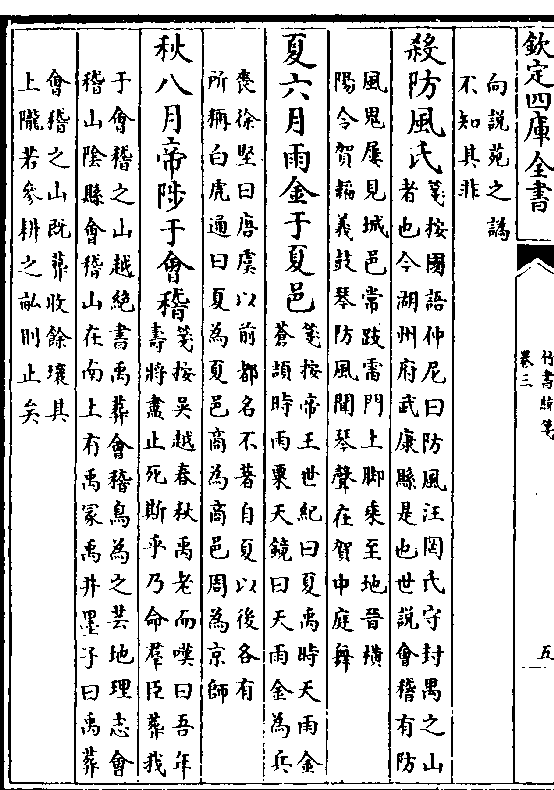 欽定四庫全書
竹書統箋
卷三
五
向說苑之譌
不知其非
殺防風氏
箋按國語仲尼曰防風汪罔氏守封禺之山
者也今湖州府武康縣是也世說會稽有防
風鬼屢見城邑常跂雷門上脚垂至地晉橫
陽令賀韜義鼓琴防風聞琴聲在賀中庭舞
夏六月雨金于夏邑
箋按帝王世紀曰夏禹時天雨金
蒼頡時雨粟天鏡曰天雨金為兵
喪徐堅曰唐虞以前都名不著自夏以後各有
所稱白虎通曰夏為夏邑商為商邑周為京師
秋八月帝陟于會稽
箋按吳越春秋禹老而嘆曰吾年
壽將盡止死斯乎乃命羣臣葬我
于會稽之山越絶書禹葬會稽鳥為之芸地理志會
稽山陰縣會稽山在南上有禹冢禹井墨子曰禹葬
會稽之山既葬收餘壤其
上隴若參耕之畝則止矣